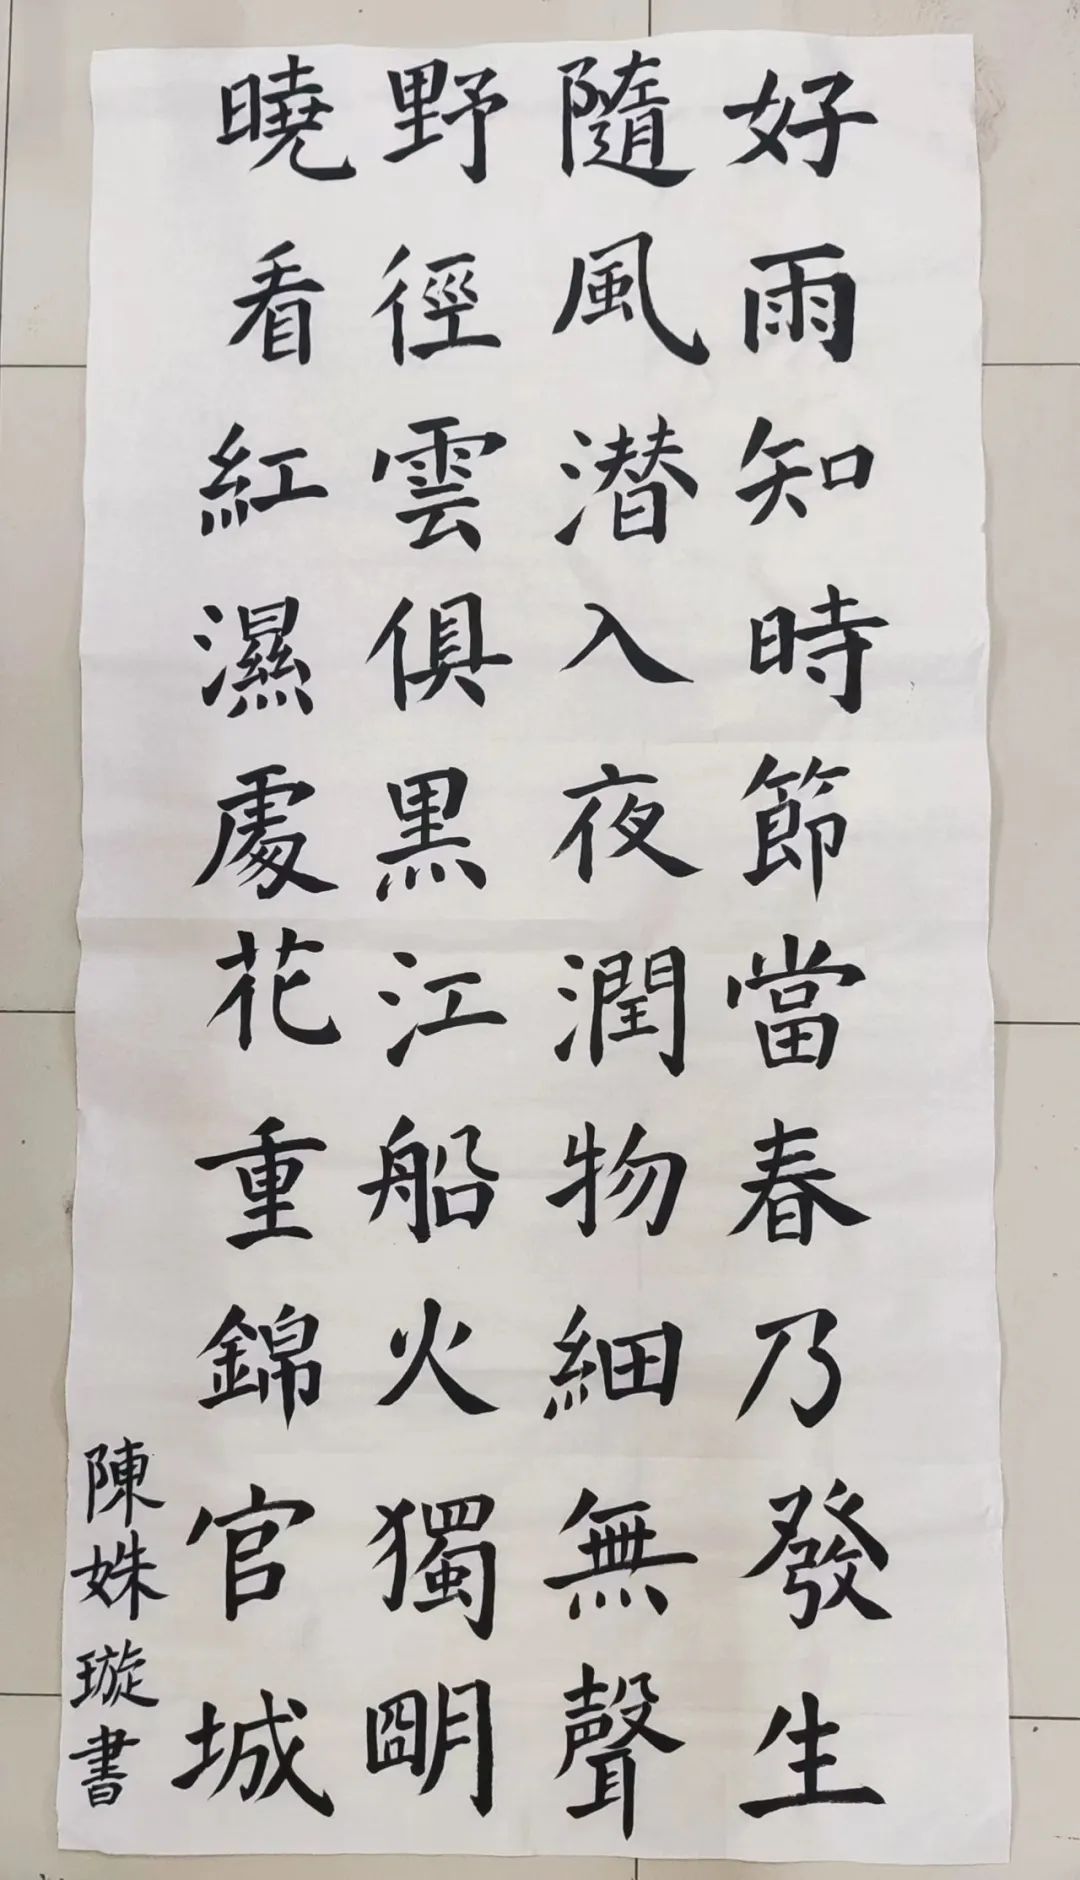 好雨知時節當春乃發生
隨風潜入夜潤物細無聲
野徑雲俱黒江船火獨朙
曉看紅濕處花重錦官城
陳姝璇書